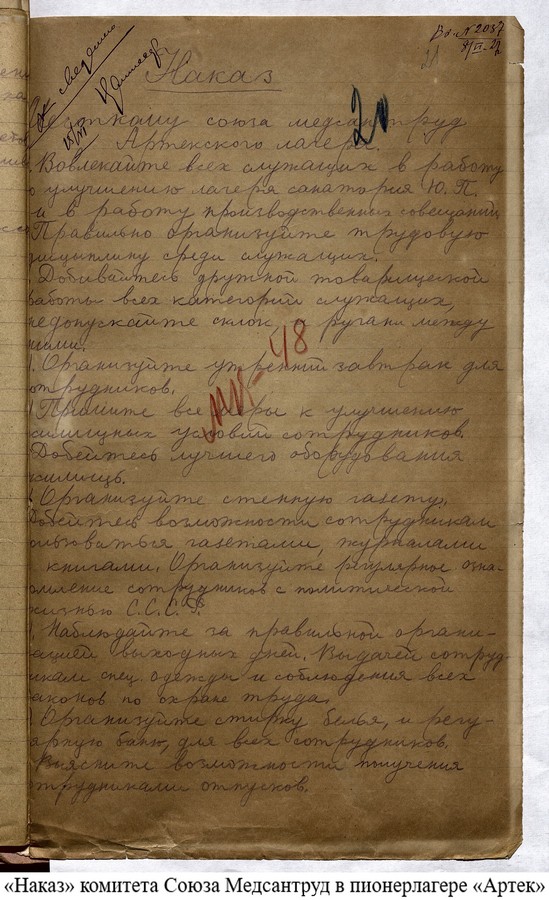 Вх. № 2037
21
Наказ
21
Месткому союза медсантруд
Артекского лагеря.
Вовлекайте всех служащих в работу
о улучшению лагеря санатория Ю.П.
и в работу производственных совещаний
Правильно организуйте трудовую
исциплину среди служащих.
Добивайтесь дружной товарищеской
работы всех категорий служащих,
недопускайте склок, и ругани между
ними.
Организуйте утренний завтрак для
отрудников.
Примите все меры к улучшению
жилищных условий сотрудников.
Добейтесь лучшего оборудования
жилищь.
Организуйте стенную газету.
Добейтесь возможности сотрудникам
ользоваться газетами, журналами
книгами. Организуйте регулярное озна-
омление сотрудников с политической
жизнью С.С.С.Р.
Наблюдайте за правильной органи-
ацией выходных дней. Выдачей сотруд-
икам спец. одежды и соблюдения всех
аконов по охране труда.
Организуйте стирку белья, и регу-
ярную баню, для всех сотрудников.
Выясните возможности получения
отрудниками отпусков.
48
«Наказ» комитета Союза Медсантруд в пионерлагере «Артек»